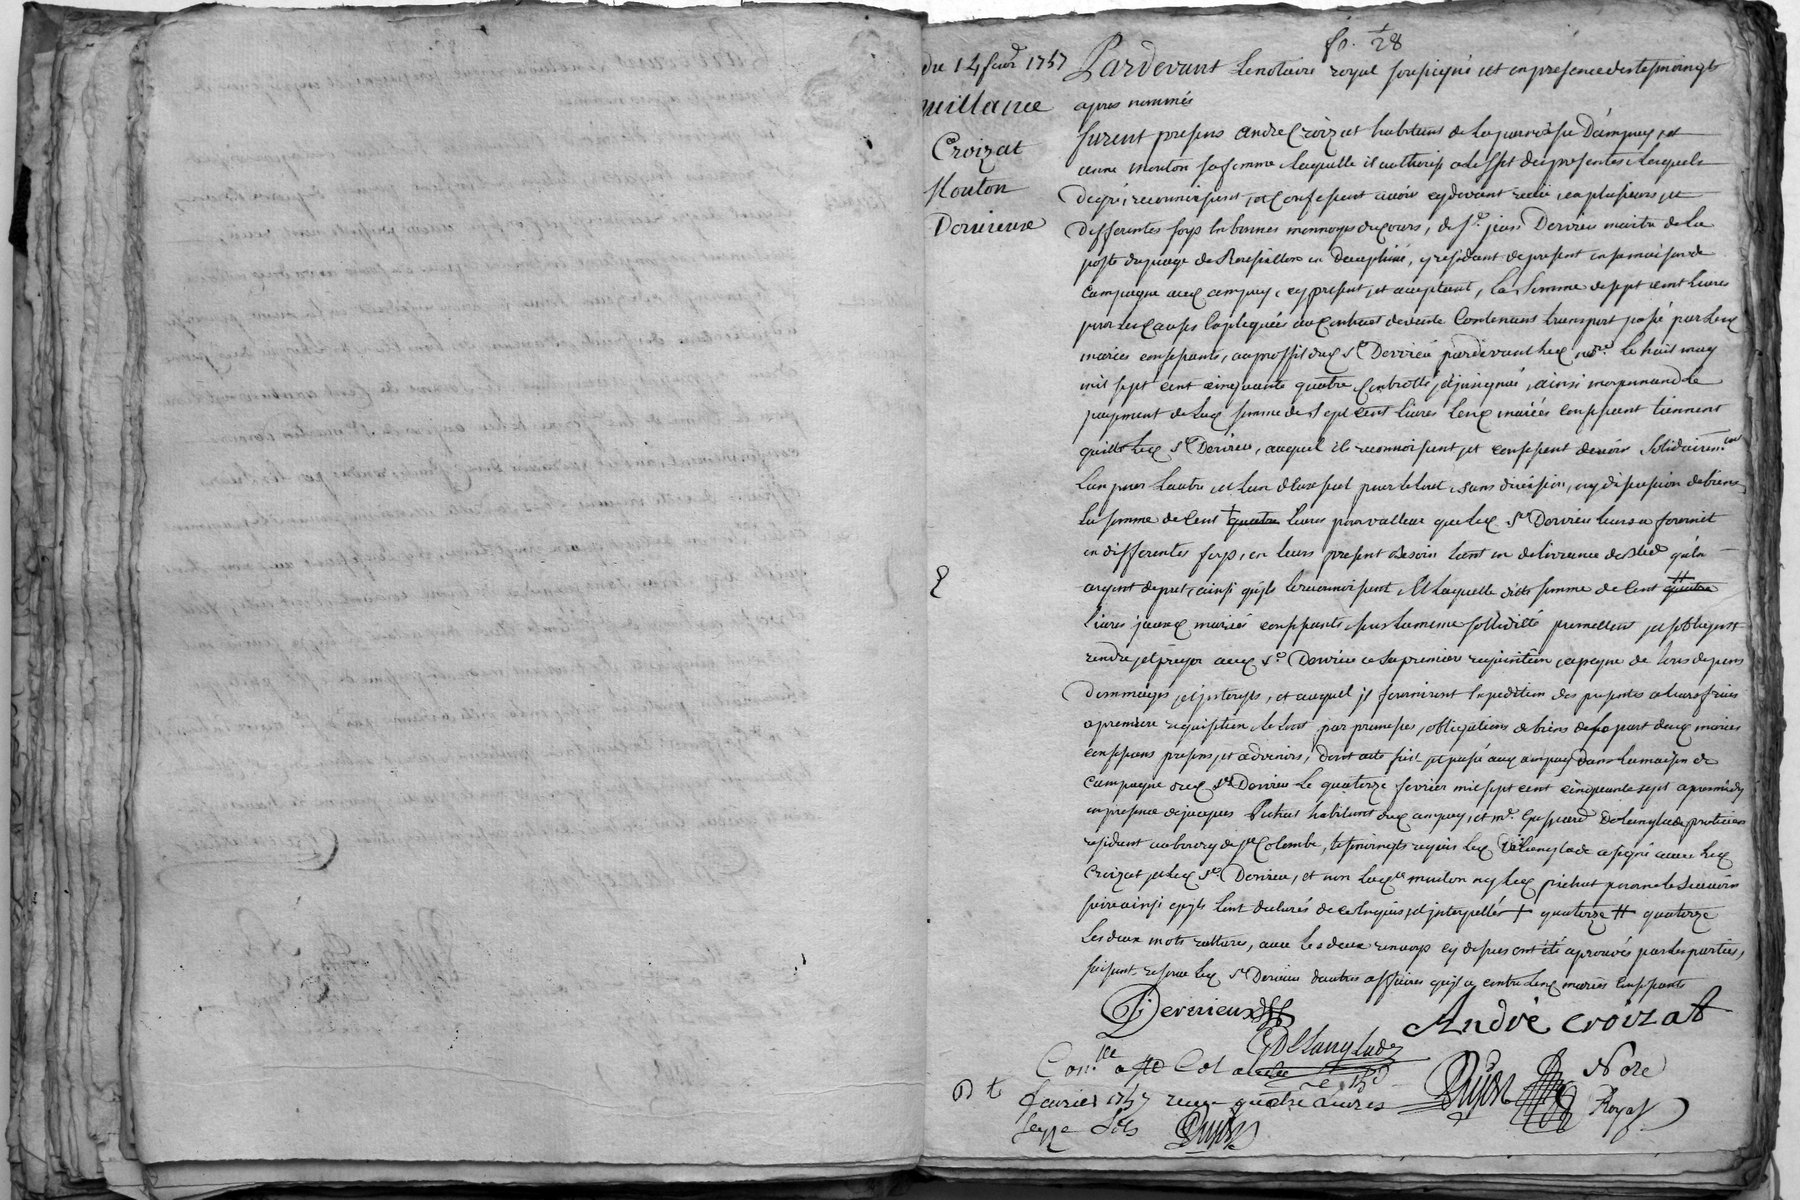 fo. 28
du 14 fevr 1757
quittance
Croizat
Mouton
Dervieux
Pardevant Le notaire royal soussigné et en presence des tesmoingts
apres nommés
furent presens andre Croizat habitant de la parroisse D'ampuy et
anne mouton sa femme laquelle il authorise a Leffet des presentes lesquels
de gré, reconnoissent, et Confessent avoir cy devant receu, en plusieurs et
differentes foys En bonnes monnoyes du cours, de Sr. jean Dervieu maitre de La
poste du peage de Roussillon en Dauphiné, y residant de present en sa maison de
Campagne aud ampuy, cy present, et aceptant, La Somme de sept cent Livres
pour Les Causes Expliquées au Contract de vente Contenant transport passé par Lesd
mariés confessants, au proffit dud Sr Dervieu pardevant Led nore. Le huit may
mil sept cent cinquante quatre Controllé, et insinué, ainsi moyennant Le
payement de Lad somme de Sept Cent Livres Lesd mariés confessant tiennent
quitte Led Sr Dervieu, auquel ils reconnoissent, et confessent devoir Solidairemt
Lun pour Lautre, et Lun d'Eux seul pour le tout, sans division, ny discussion de biens
La somme de Cent + quatre Livres pour valleur que Led Sr Dervieu leurs a fournit
en differentes foys, en Leurs present besoin tant en delivrance de Bled qu'en
argent de pret, ainsi qu'ils Le reconnoissent, Et Laquelle ditte somme de Cent # quatre
Livres iceux mariés confessants, sous La meme sollidité promettent, et s'obligent
rendre, et payer aud Sr. Dervieu a sa premier requisition, a peyne de tous depens
dommages, et interests, et auquel ils fourniront Expedition des presentes a leurs frais
a premiere requisition, Le tout par promesses, obligations de biens de la part desd mariés
confessans presens, et advenirs, Dont acte fait, et passé aud ampuy Dans La maison de
Campagne dud Sr Dervieu Le quatorze fevrier mil sept cent cinquante sept apres midy
en presence de jacques Pichat habitant dud ampuy, et mr. Gaspard Delanglade praticien
residant au bourg de ste Colombe, tesmoingts requis Led Delanglade a signé avec Led
Croizat et Led Sr Dervieu, et non Lade mouton ny Led pichat pour ne Le Scavoir
faire ainsi qu'ils l'ont declarés de ce Enquis, et interpellés + quatorze # quatorze
Les deux mots rattures, avec Les deux renvoys cy dessus ont été aprouvés par Les parties,
faisant reserve Led Sr Dervieu d'autres affaires qu'il a contre Lesd mariés Confessants
Dervieux
André Croizat
Delanglade
Nore
Royal
fevrier 1757 receu quatre Livres
seize sols